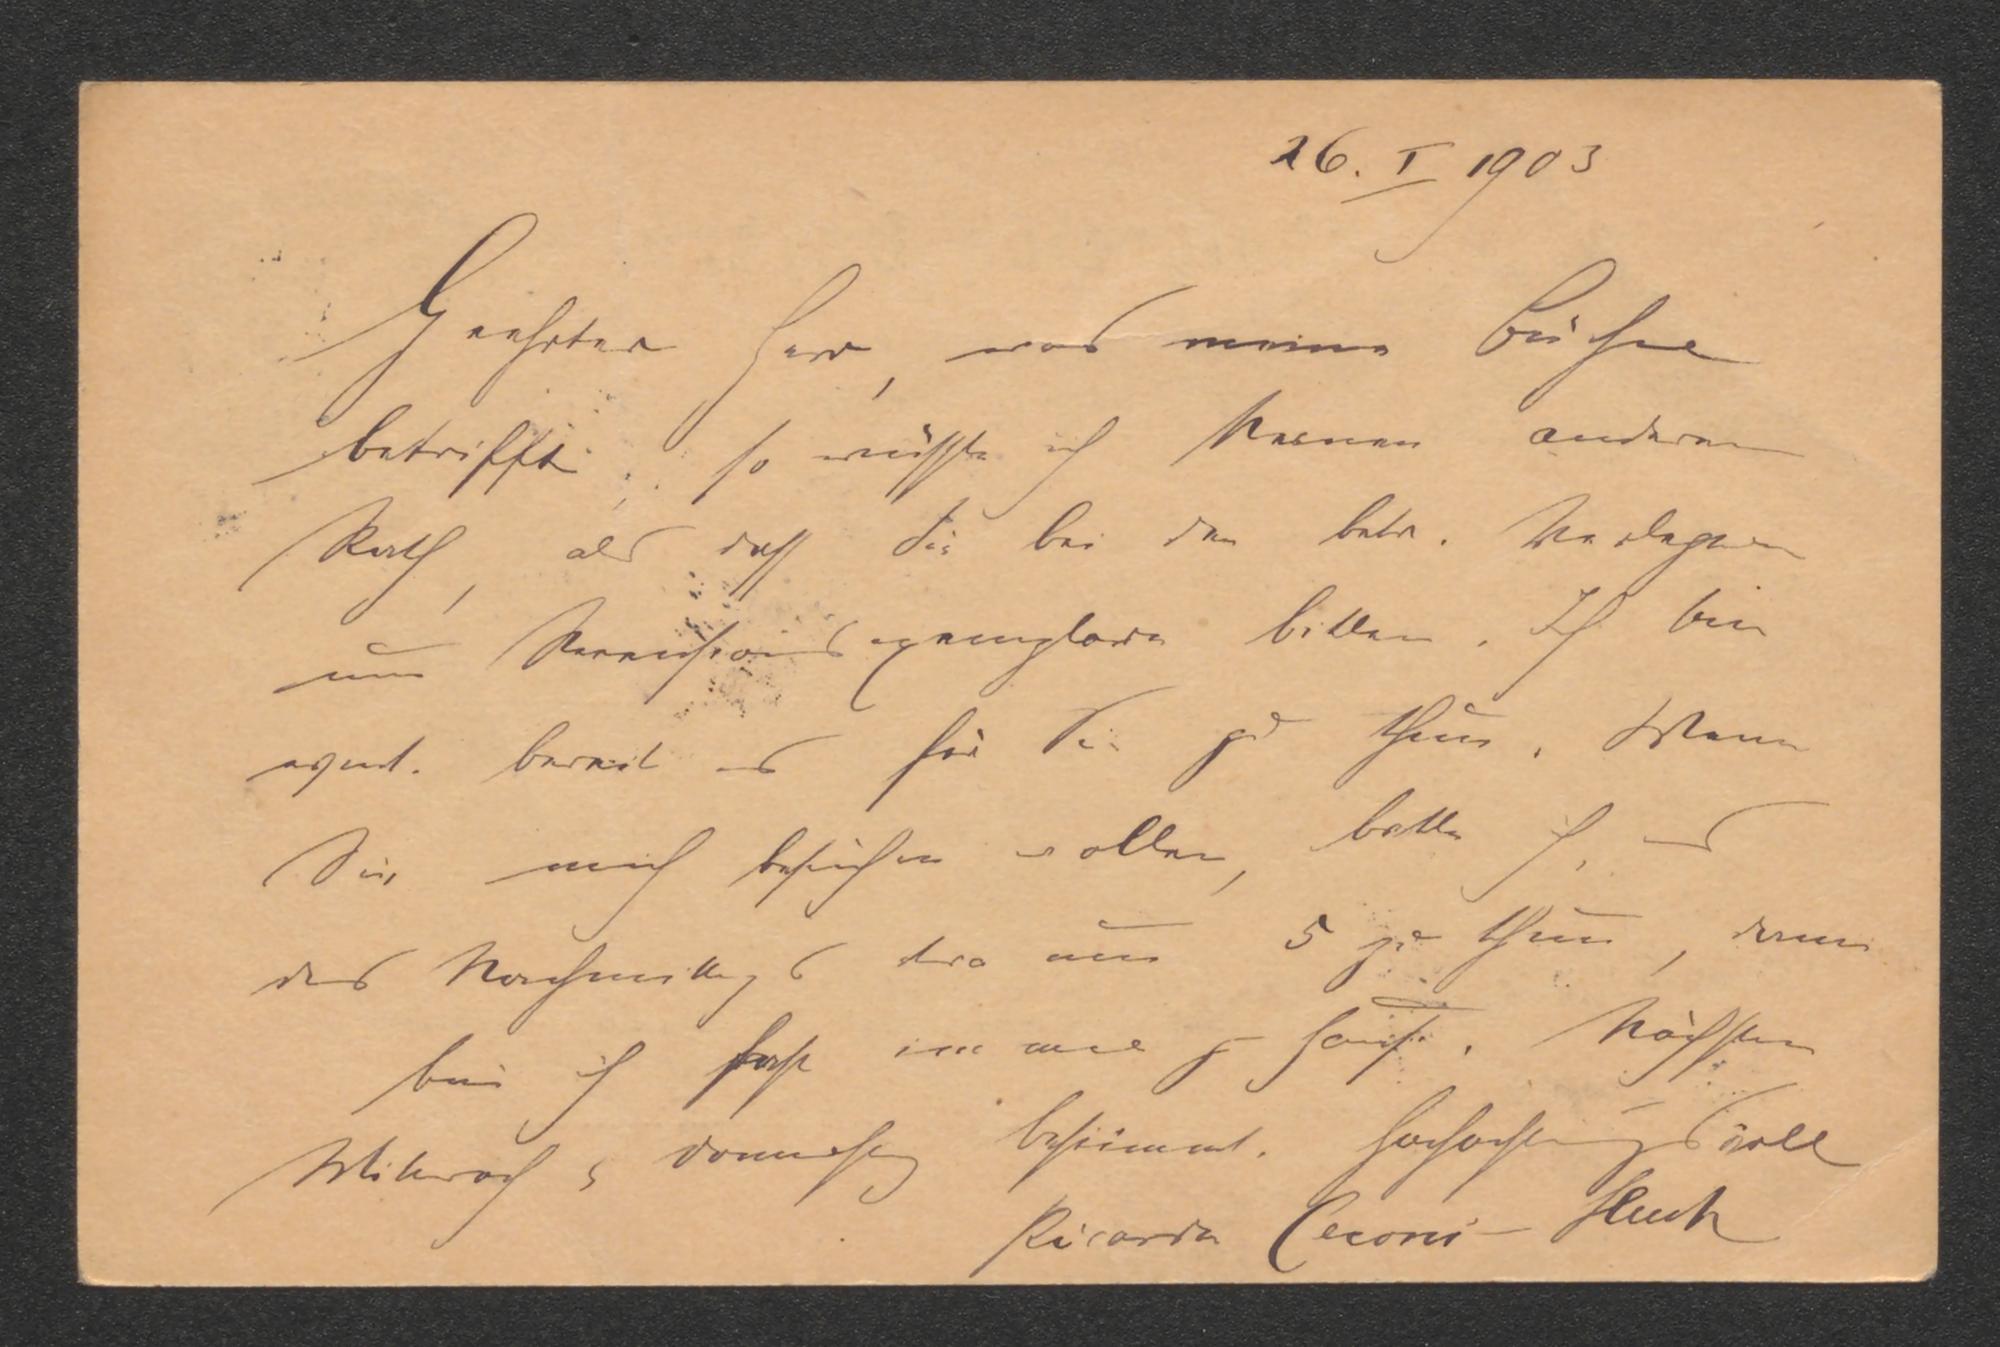 26. I 1903
Geehrter Herr, was meine Bücher
betrifft, so wüsste ich keinen anderen
Rath, als dass Sie bei den betr. Verlegern
um Recensionsexemplare bitten. Ich bin
event. bereit es für Sie zu thun. Wenn
Sie mich besuchen wollen, bitte ich, es
des Nachmittags etwa um 5 zu thun, denn
bin ich fast immer z Hause. Nächsten
Mittwoch & Donnerstag bestimmt. Hochachtungsvoll
Ricarda Ceconi-Huch